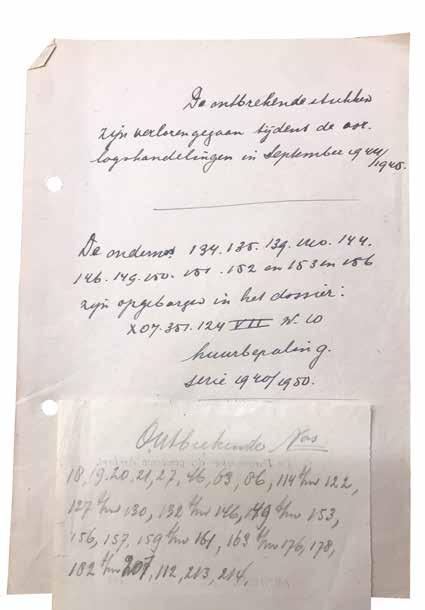 De ontbrekende stukken
zijn verloren gegaan tijdens de oor-
logshandelingen in September 1944/
1945.
De onderno 134. 135. 139. 140. 144.
146. 149. 150. 151. 152 en 153 en 156
zijn opgeborgen in het dossier:
X07.351.124 VII N. 10
huurbepaling.
serie 1940/1950.
Ontbrekende Nos
18, 19. 20, 21, 27, 46, 63, 86, 114 t/m 122,
127 t/m 130, 132 t/m 146, 149 t/m 153,
156, 157, 159 t/m 161, 163 t/m 176, 178,
182 t/m 207, 112, 213, 214,